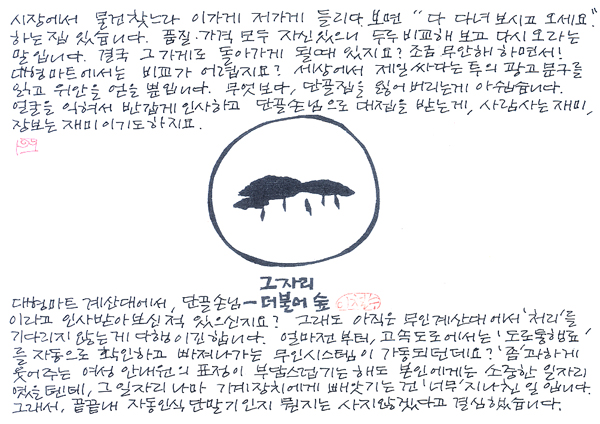 시장에서 물건찾느라 이가게 저가게 들리다 보면 "다 다녀 보시고 오세요."
하는 집 있습니다. 품질·가격 모두 자신있으니 두루 비교해 보고 다시 오라는
말입니다. 결국 그 가게로 돌아가게 될때 있지요? 조금 무안해 하면서!
대형마트에서는 비교가 어렵지요? 세상에서 제일 싸다는 투의 광고문구를
읽고 위안을 얻을 뿐입니다. 무엇보다, 단골집을 잃어버리는게 아쉽습니다.
얼굴을 익혀서 반갑게 인사하고 단골손님으로 대접을 받는게, 사람사는 재미,
장보는 재미이기도 하지요.
그 자리
대형마트 계산대에서, 단골손님 – 더불어 숲
이라고 인사받아 보신 적 있으신지요? 그래도 아직은 무인계산대에서 '처리'를
기다리지 않는게 다행이긴 합니다. 얼마전부터, 고속도로에서는 '도로통행료'
를 자동으로 확인하고 빠져나가는 무인시스템이 가동되던데요? '좀' 과하게
웃어주는 여성 안내원의 표정이 부담스럽기는 해도 본인에게는 소중한 일자리
였을텐데, 그 일자리나마 기계장치에게 빼앗기는 건 '너무' 지나친 일입니다.
그래서, 끝끝내 자동인식 단말기인지 뭔지는 사지않겠다고 결심했습니다.